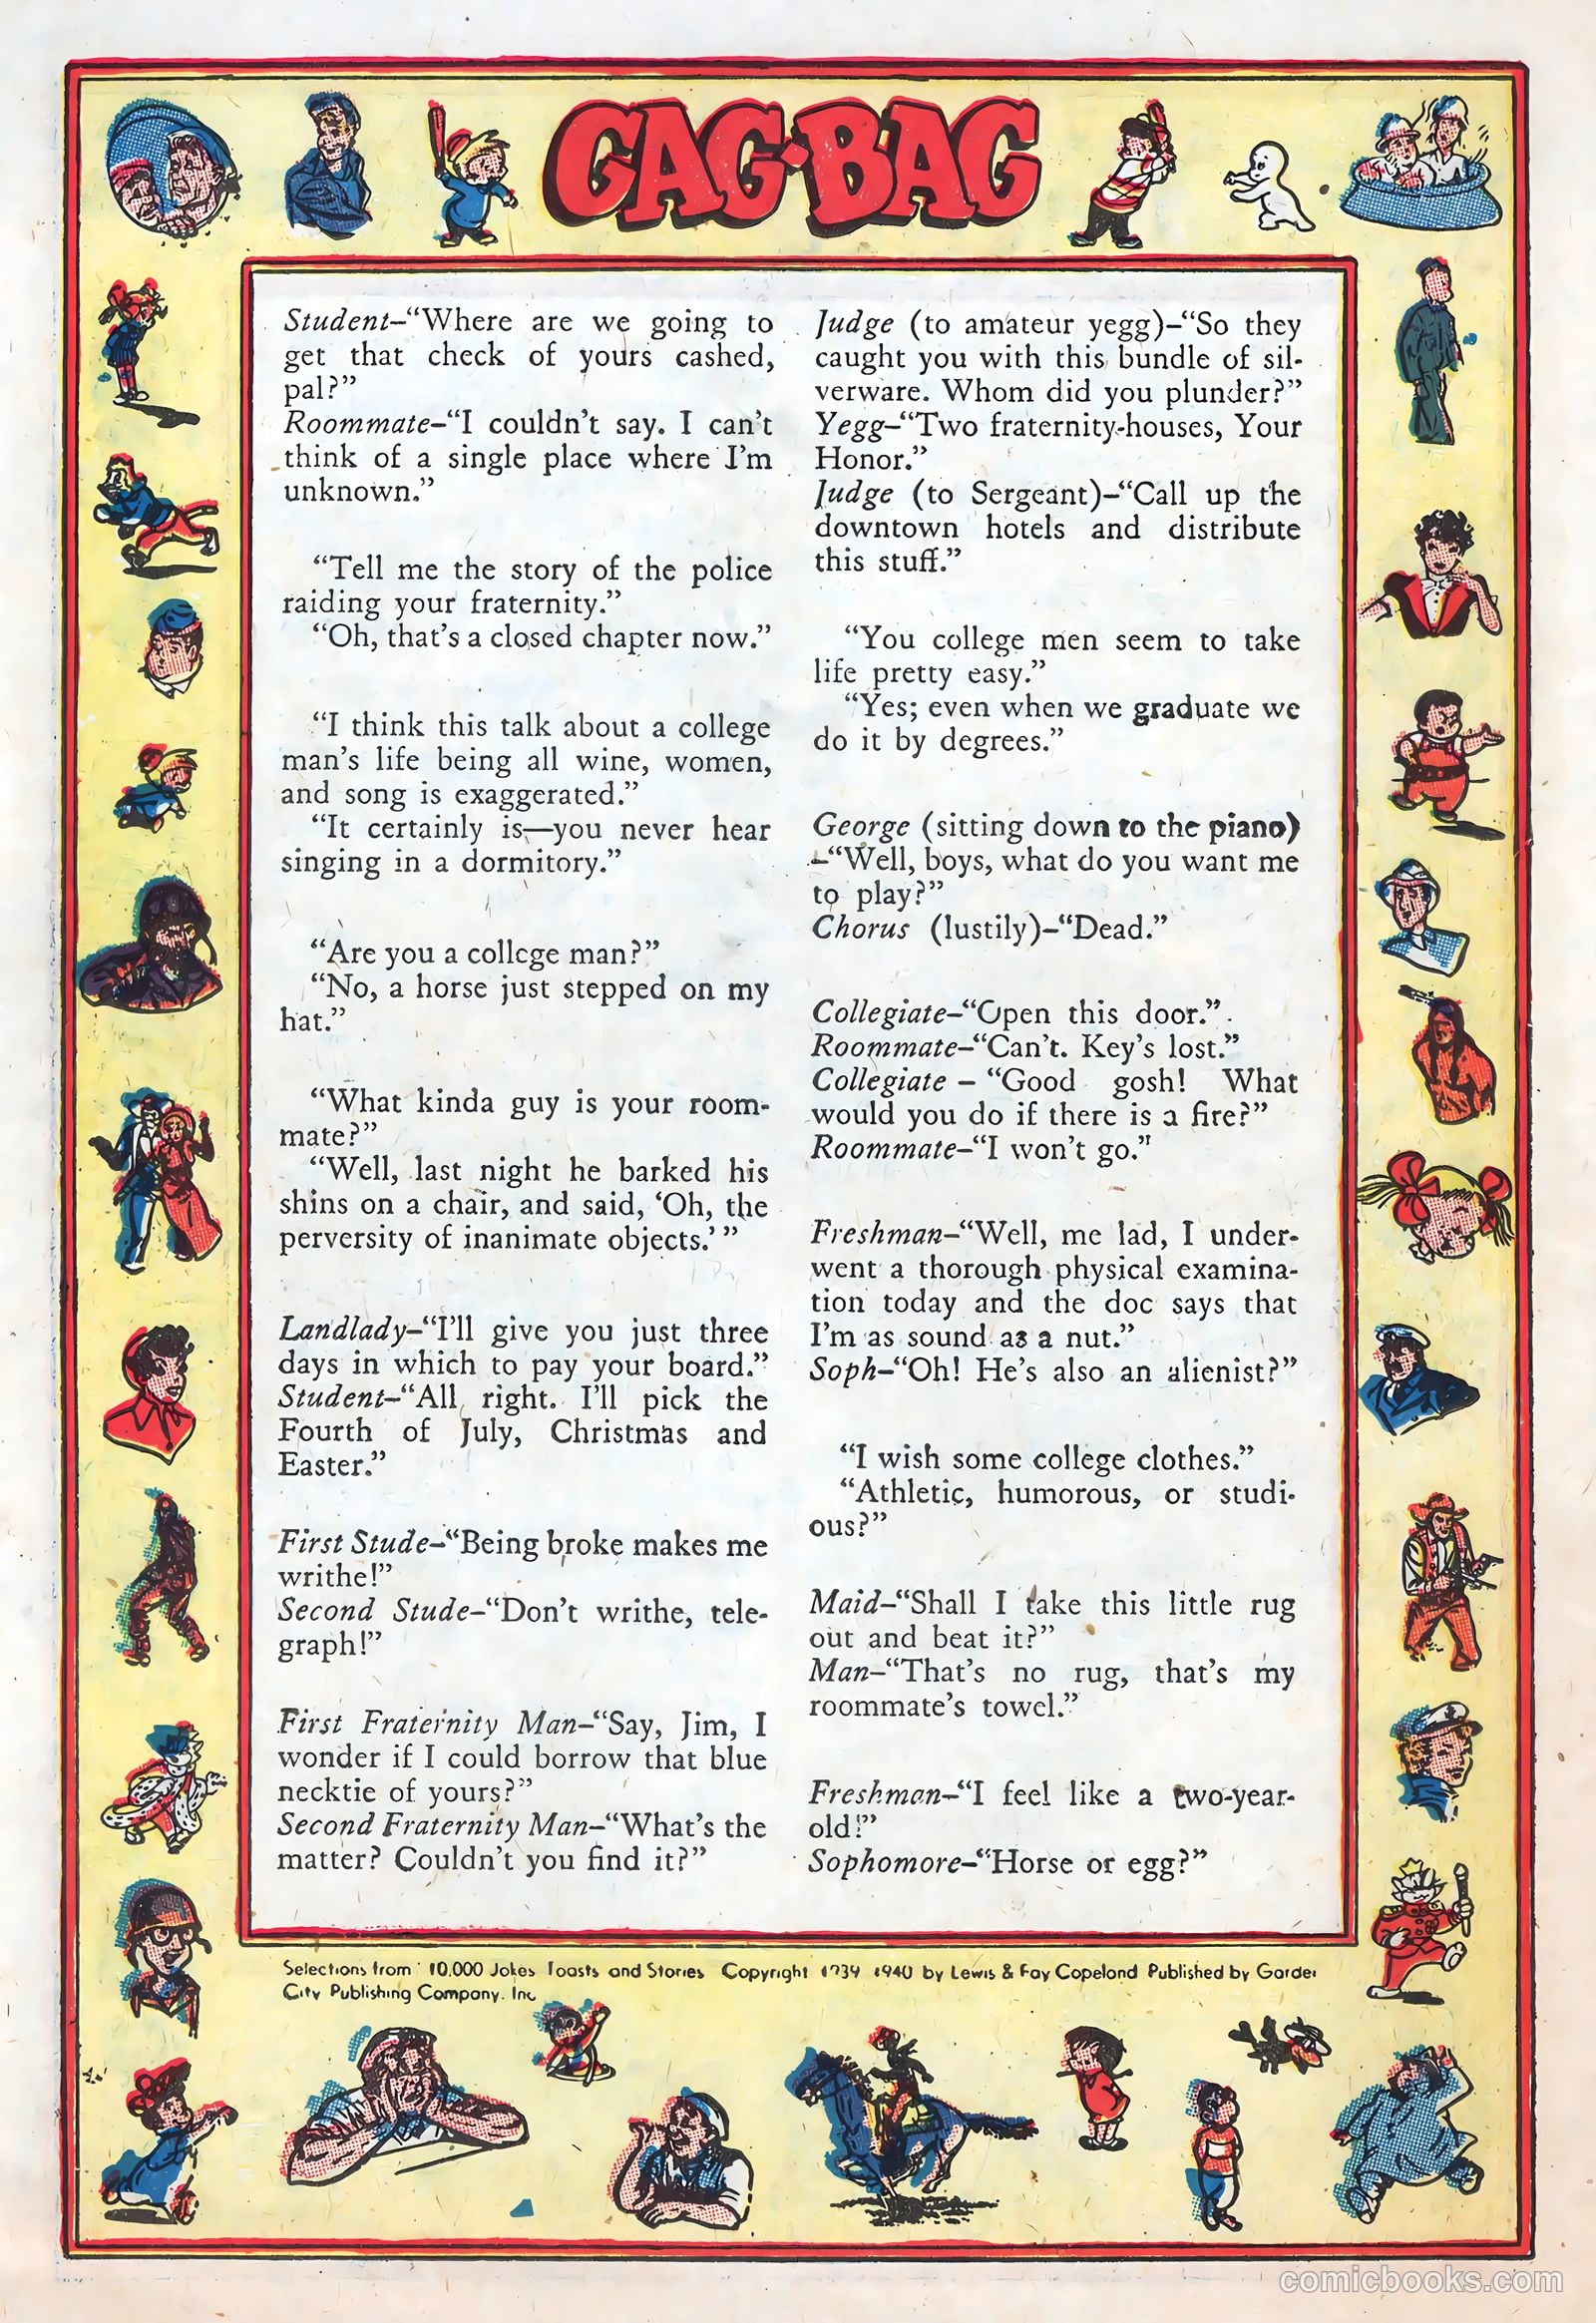 GAG·BAG
Student–“Where are we going to
get that check of yours cashed,
pal?”
Roommate–“I couldn’t say. I can’t
think of a single place where I’m
unknown.”
“Tell me the story of the police
raiding your fraternity.”
“Oh, that’s a closed chapter now.”
“I think this talk about a college
man’s life being all wine, women,
and song is exaggerated.”
“It certainly is—you never hear
singing in a dormitory.”
“Are you a college man?”
“No, a horse just stepped on my
hat.”
“What kinda guy is your room-
mate?”
“Well, last night he barked his
shins on a chair, and said, ‘Oh, the
perversity of inanimate objects.’”
Landlady–“I’ll give you just three
days in which to pay your board.”
Student–“All right. I’ll pick the
Fourth of July, Christmas and
Easter.”
First Stude–“Being broke makes me
writhe!”
Second Stude–“Don’t writhe, tele-
graph!”
First Fraternity Man–“Say, Jim, I
wonder if I could borrow that blue
necktie of yours?”
Second Fraternity Man–“What’s the
matter? Couldn’t you find it?”
Judge (to amateur yegg)–“So they
caught you with this bundle of sil-
verware. Whom did you plunder?”
Yegg–“Two fraternity-houses, Your
Honor.”
Judge (to Sergeant)–“Call up the
downtown hotels and distribute
this stuff.”
“You college men seem to take
life pretty easy.”
“Yes; even when we graduate we
do it by degrees.”
George (sitting down to the piano)
–“Well, boys, what do you want me
to play?”
Chorus (lustily)–“Dead.”
Collegiate–“Open this door.”
Roommate–“Can’t. Key’s lost.”
Collegiate – “Good gosh! What
would you do if there is a fire?”
Roommate–“I won’t go.”
Freshman–“Well, me lad, I under-
went a thorough physical examina-
tion today and the doc says that
I’m as sound as a nut.”
Soph–“Oh! He’s also an alienist?”
“I wish some college clothes.”
“Athletic, humorous, or studi-
ous?”
Maid–“Shall I take this little rug
out and beat it?”
Man–“That’s no rug, that’s my
roommate’s towel.”
Freshman–“I feel like a two-year-
old!”
Sophomore–“Horse or egg?”
Selections from 10,000 Jokes Toasts and Stories Copyright 1939 1940 by Lewis & Fay Copeland Published by Garden
City Publishing Company. Inc
comicbooks.com